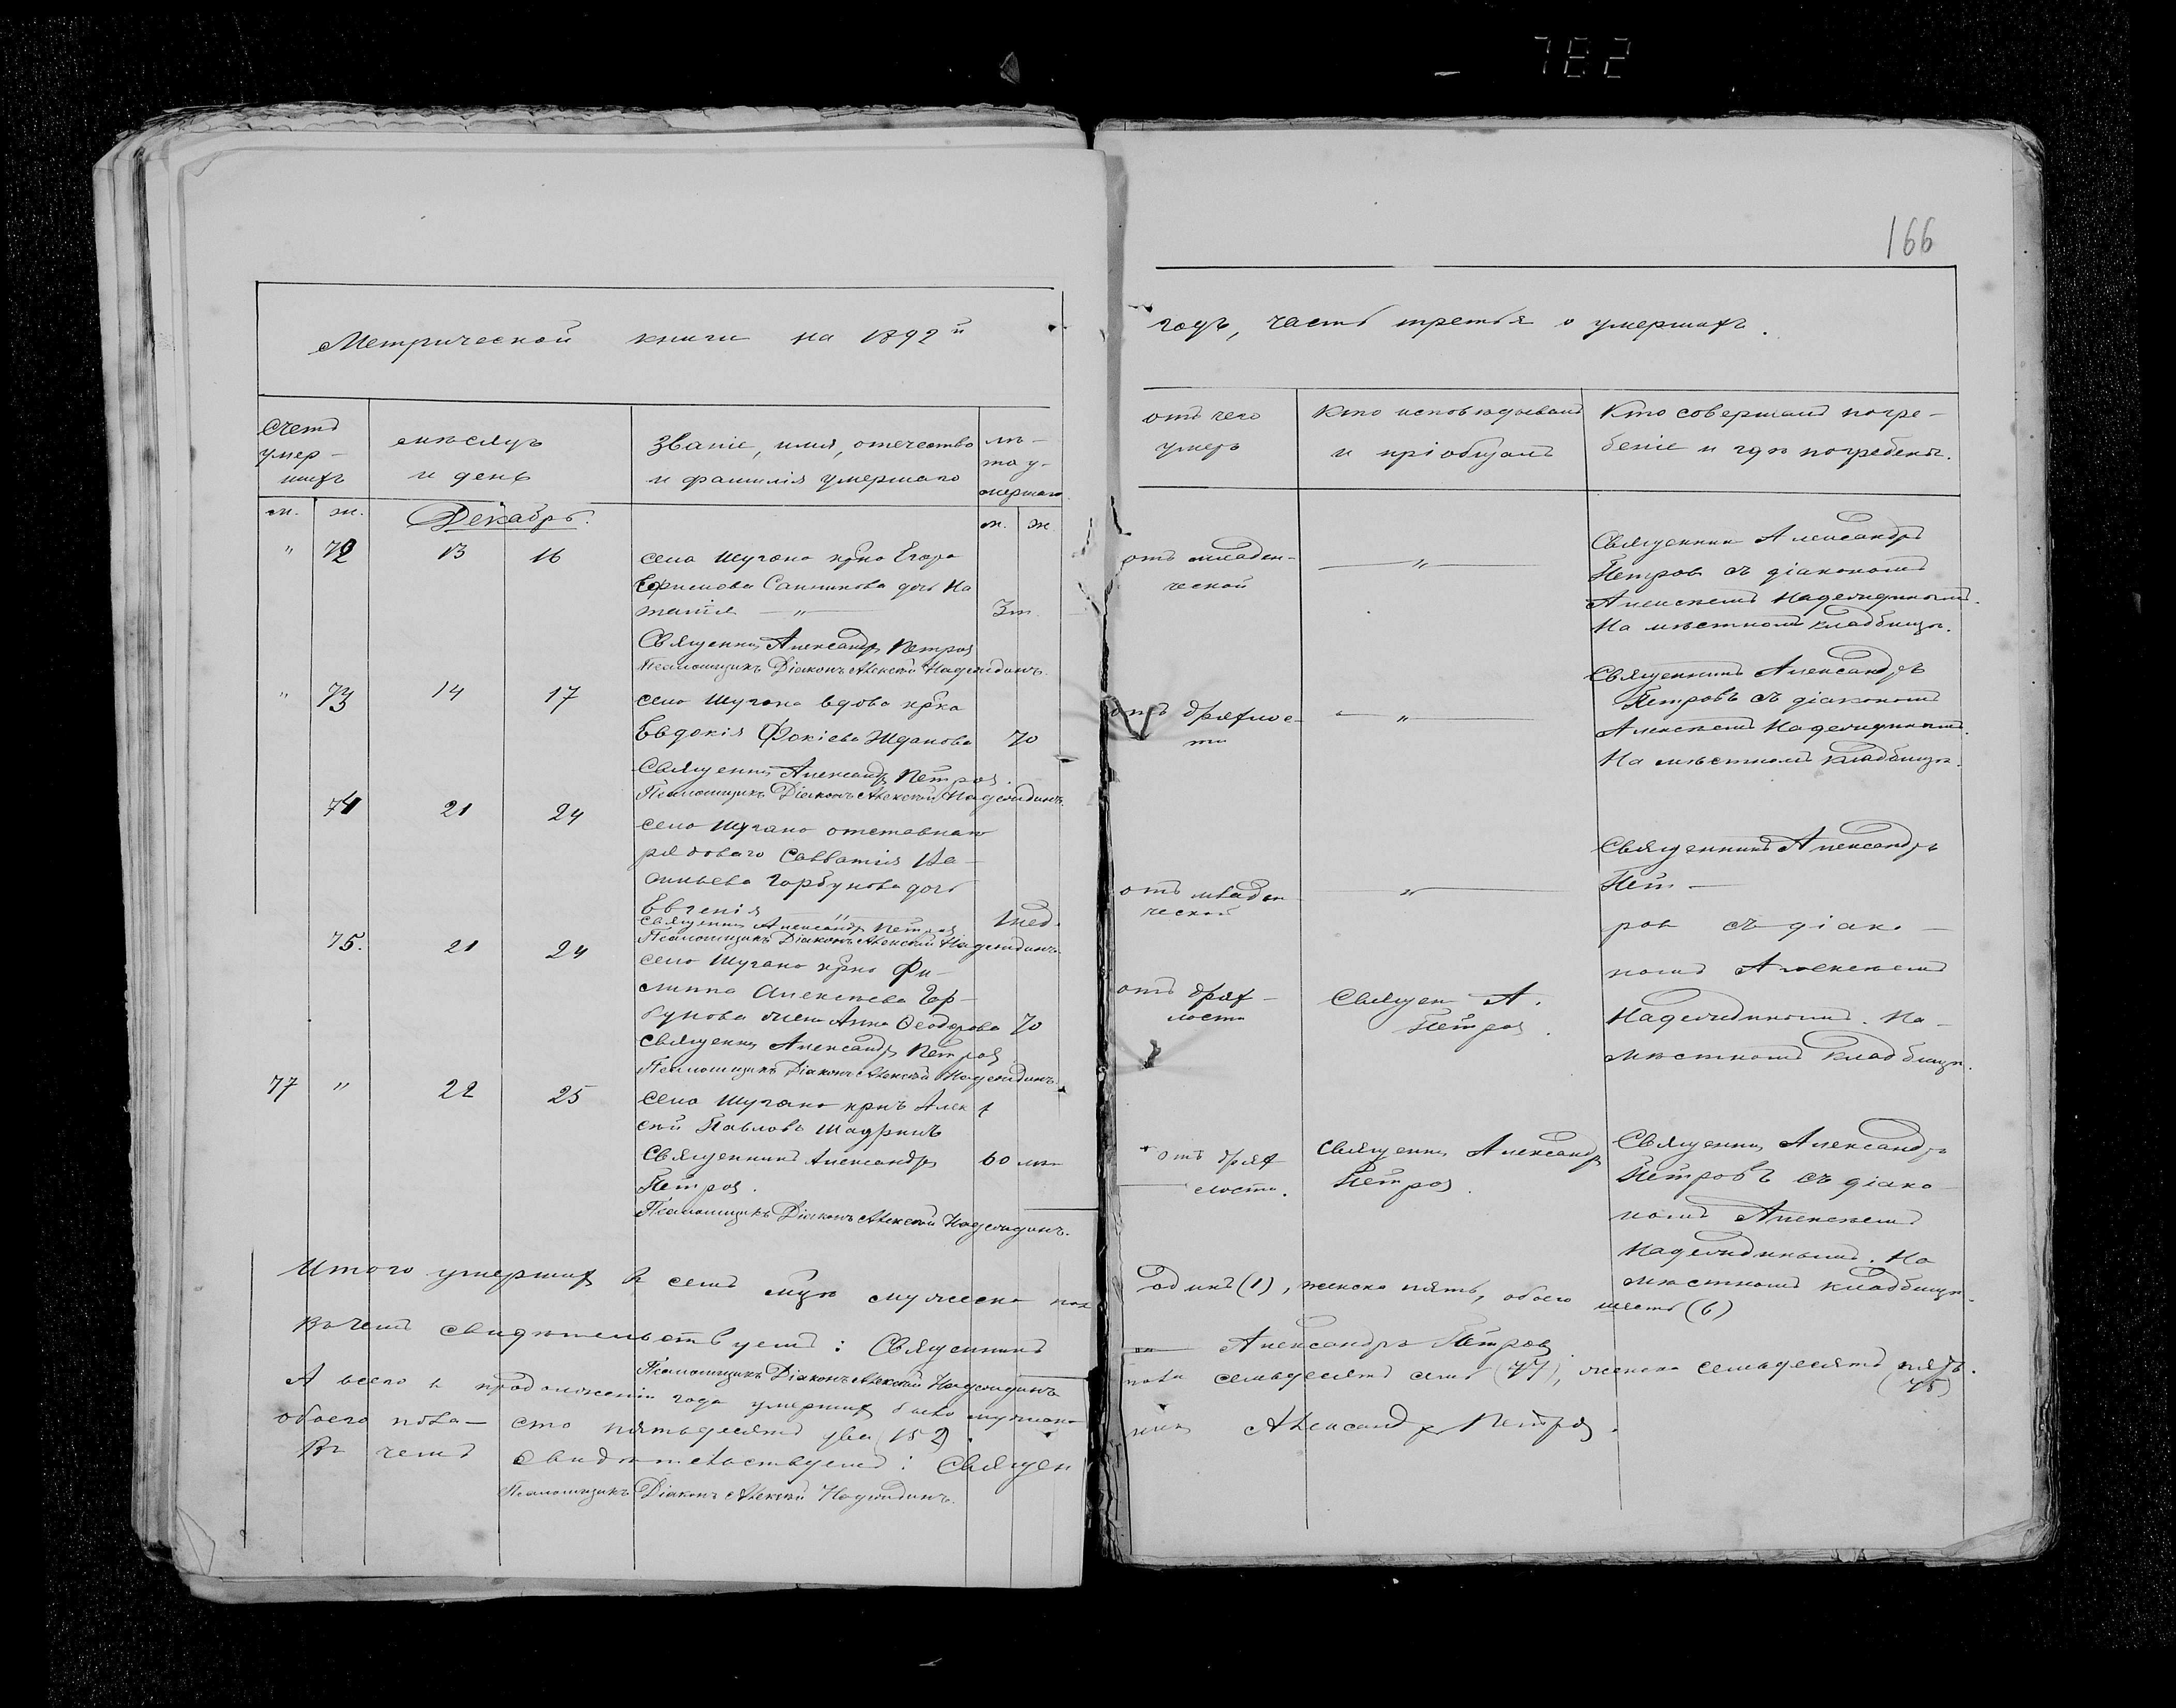 782
166
Метрической книги на 1892й
годъ, часть третья о умершихъ.
Счетъ умер-
шихъ
мѣсяцъ
и день
Званіе, имя, отечество
и фамилія умершаго
лѣ-
та у-
мершаго
отъ чего
умеръ
Кто исповѣдывалъ
и пріобщалъ
Кто совершалъ погре-
беніе и гдѣ погребены.
м. ж. Декабрь. м. ж.
" 72 13 16 села Шугана крна Егора
Ефимова Санникова дочь На
талія — " — 3 н.
Священникъ Александръ Петровъ
Псаломщикъ Діаконъ Алексѣй Надеждинъ.
отъ младен-
ческой
"
Священникъ Александръ
Петровъ съ діакономъ
Алексѣемъ Надеждинымъ.
На мѣстномъ кладбищѣ.
" 73 14 17 села Шугана вдова крка
Евдокія Фокіева Жданова 70
Священникъ Александръ Петровъ.
Псаломщикъ Діаконъ Алексѣй Надеждинъ.
отъ дряхлос-
ти
"
Священникъ Александръ
Петровъ съ діакономъ
Алексѣемъ Надеждинымъ.
На мѣстномъ кладбищѣ.
74 21 24 село Шугано отставнаго
рядоваго Савватія Ва-
сильева Горбунова дочь
Евгенія — " — 1 нед.
Священникъ Александръ Петровъ
Псаломщикъ Діаконъ Алексѣй Надеждинъ.
отъ младен
ческой
"
Священникъ Александръ
Пет —
ров съ діако —
номъ Алексѣемъ
Надеждинымъ. На —
мѣстномъ кладбищѣ.
75. 21 24 село Шугано крна Фи-
липпа Алексѣева Гор-
бунова жена Анна Ѳеодорова 70
Священникъ Александръ Петровъ
Псаломщикъ Діаконъ Алексѣй Надеждинъ.
отъ дрях-
лости
Священ. А.
Петровъ.
77 " 22 25 села Шугано крнъ Алек
сѣй Павловъ Шадринъ
Священникъ Александръ 60 лѣт
Петровъ.
Псаломщикъ Діаконъ Алексѣй Надеждинъ.
отъ дрях
лости.
Священникъ Александръ
Петровъ.
Священникъ Александръ
Петровъ съ діако
номъ Алексѣемъ
Надеждинымъ. На
мѣстномъ кладбищѣ.
Итого умершихъ въ семъ мцѣ мужеска пол
одинъ (1), женска пять, обоего шесть (6)
Въ чемъ свидѣтельствуемъ: Священникъ
Александръ Петровъ
Псаломщикъ Діаконъ Алексѣй Надеждинъ
А всего въ продолженіи года умершихъ было мужеска
пола семьдесятъ семь (77), женска семьдесятъ пять. (75)
обоего пола — сто пятьдесятъ два (152).
Въ чемъ свидѣтельствуемъ: Священ
никъ Александръ Петровъ.
Псаломщикъ Діаконъ Алексѣй Надеждинъ.